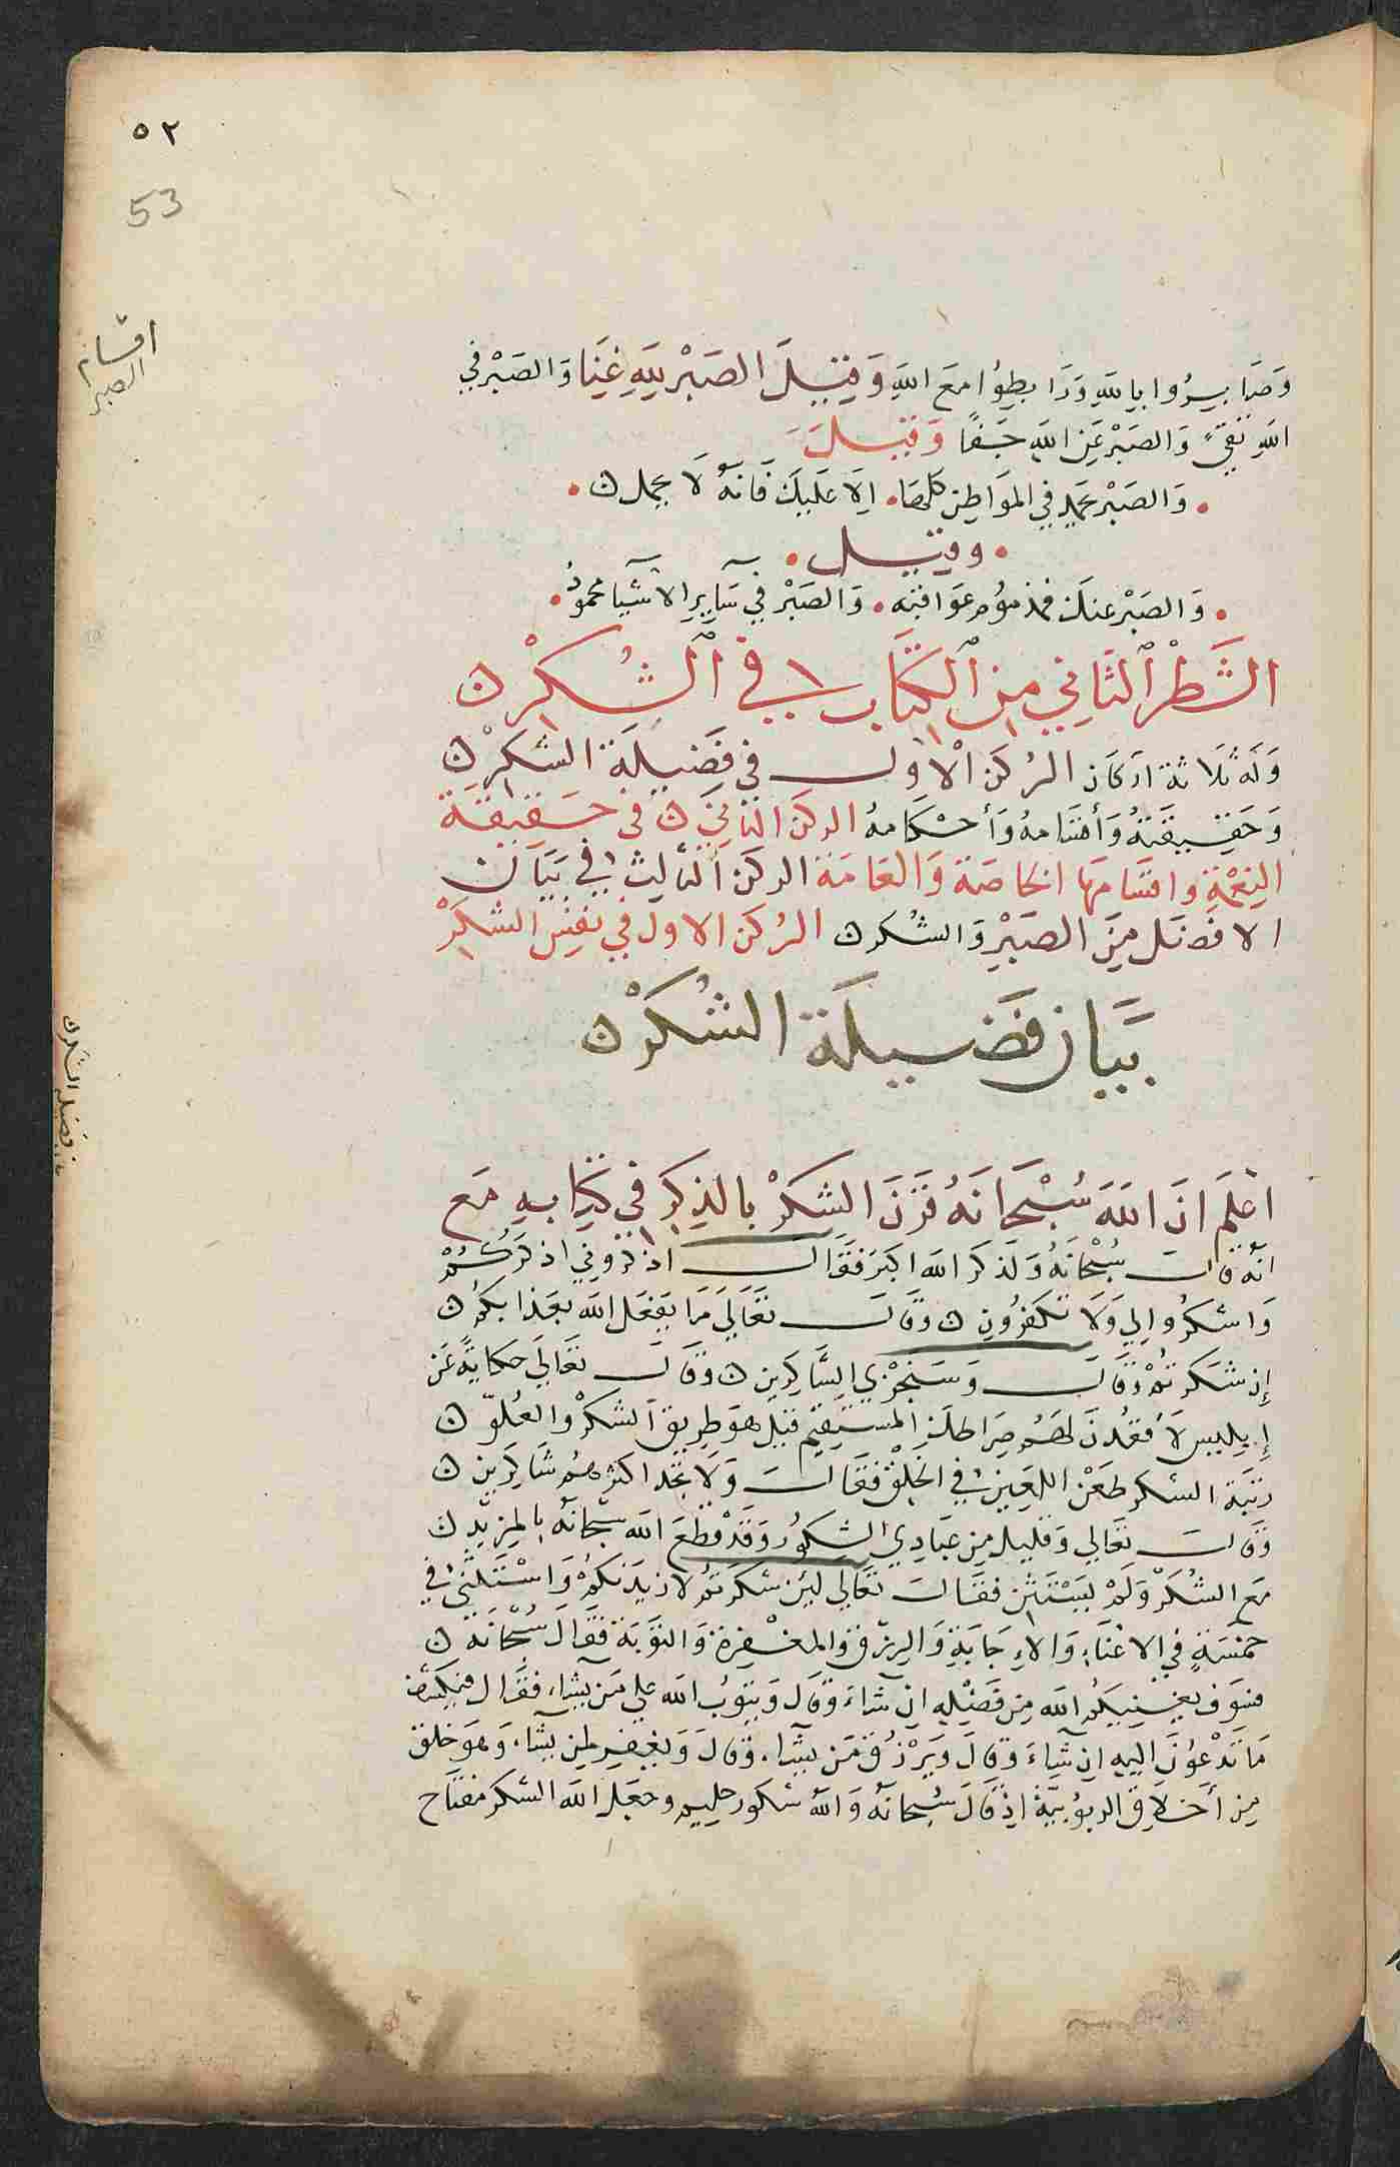 ٥٢
53
اقسام
الصبر
وَصَابِيرُوا بِاللهِ وَرَابِطُوا مَعَ اللهِ وَقِيلَ الصَبْر لِلهِ غِنَا وَالصَبْر في
اللهِ تقي وَالصَبْر عَنِ اللهِ جَفَا وَقِيلَ
وَالصَبْر يحمد في المَوَاطِنِ كلها الا عَلَيكَ فَانَهُ لَا يحمل ن
وقيل
وَالصَبْر عنك فمذموم عَوَاقبه وَالصَبْر في سَايرِ الأشيا محمودُ
الشَطْر الثَاني مِن الكِتَاب في الشُكرْ ن
وَله ثلَاثة اركَان الرُكن الأول في فَضِيلَة الشكرْ ن
وَحَقِيقَتهُ وَأقسَامهُ وَأحْكَامهُ الركن الثاني ن في حَقيقَة
النِعْمَةِ واقسَامهَا الخاصَة وَالعَامَة الركن الثالث في بَيَان
الافضَل مِنَ الصَبْرِ وَالشُكر ن الرُكن الاول في نفس الشكرْ
بَيَان فَضيلَة الشُكرْ ن
فضيلة الشكر ن
اعْلَم انَ اللهَ سُبْحَانَهُ قَرَنَ الشكرْ بالذكر في كِتَابهِ مَع
انه قال سُبْحَانَهُ وَلَذكر الله اكبَر فَقَال اذكروني اذكركُمْ
وَاشكرُوا لِي وَلَا تكفرُونِ ن وقَال تعَالَى مَا يَفعَل الله بعَذابكُم ن
إن شكَرتمْ وَقَال وَسَنجْزي الشَاكرين ن وَقَالَ تعَالَى حكايةً عَن
إبليس لأقعُدنَ لهُم صِرَاطك المستقيم قيلَ هو طريق الشكرْ والعُلوّ ن
رتبَة الشكر طعَن اللعَين في الخلْق فقَالَ وَلَا تجد اكثرهُم شَاكرين ن
وَقَالَ تعَالى وَقليل مِن عبَادِي الشكورُ وَقدْ قطعَ الله سُبحانَه بالمزيد ن
مَع الشُكرْ وَلَمْ يَسْتَثن فقَالَ تعَالى لئن شكَرتم لأزيدَنكمْ وَاسْتَثنى في
خمسَةٍ في الاغنَاءِ وَالإجَابَةِ وَالرزق وَالمغفِرة وَالتوبَة فقَالَ سُبْحَانَه ن
فسَوف يغنيكم الله مِن فَضْلِهِ ان شاءَ وَقَال وَيتوبُ الله على مَن يشاء فقَال فيكشف
مَا تدْعُونَ اليهِ ان شاءَ وَقَالَ وَيَرْزق مَن يشَاء وَقَالَ وَيغفِر لمن يشَاء وَهو خلق
مِن أخلَاق الربُوبيَّة اذ قَالَ سُبحانهُ وَاللهُ شكور حليم وجعَل الله الشكر مفتَاح